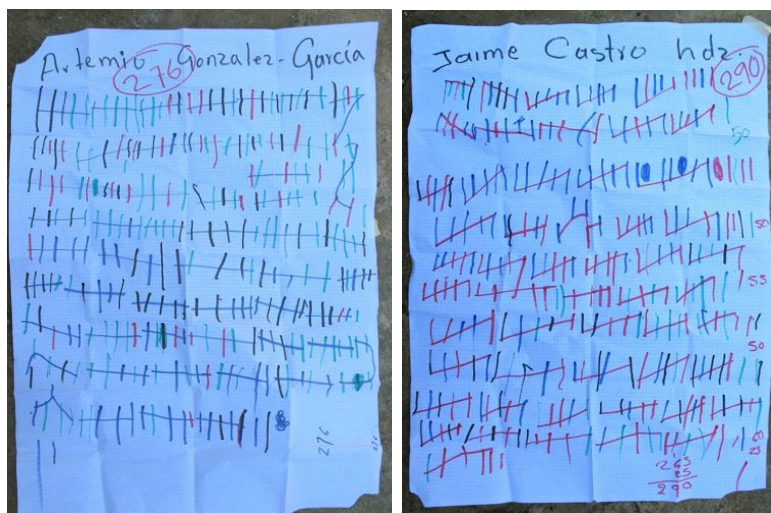 Artemio Gonzalez-García
276
276
Jaime Castro hdz.
290
50
50
55
50
265
25
290